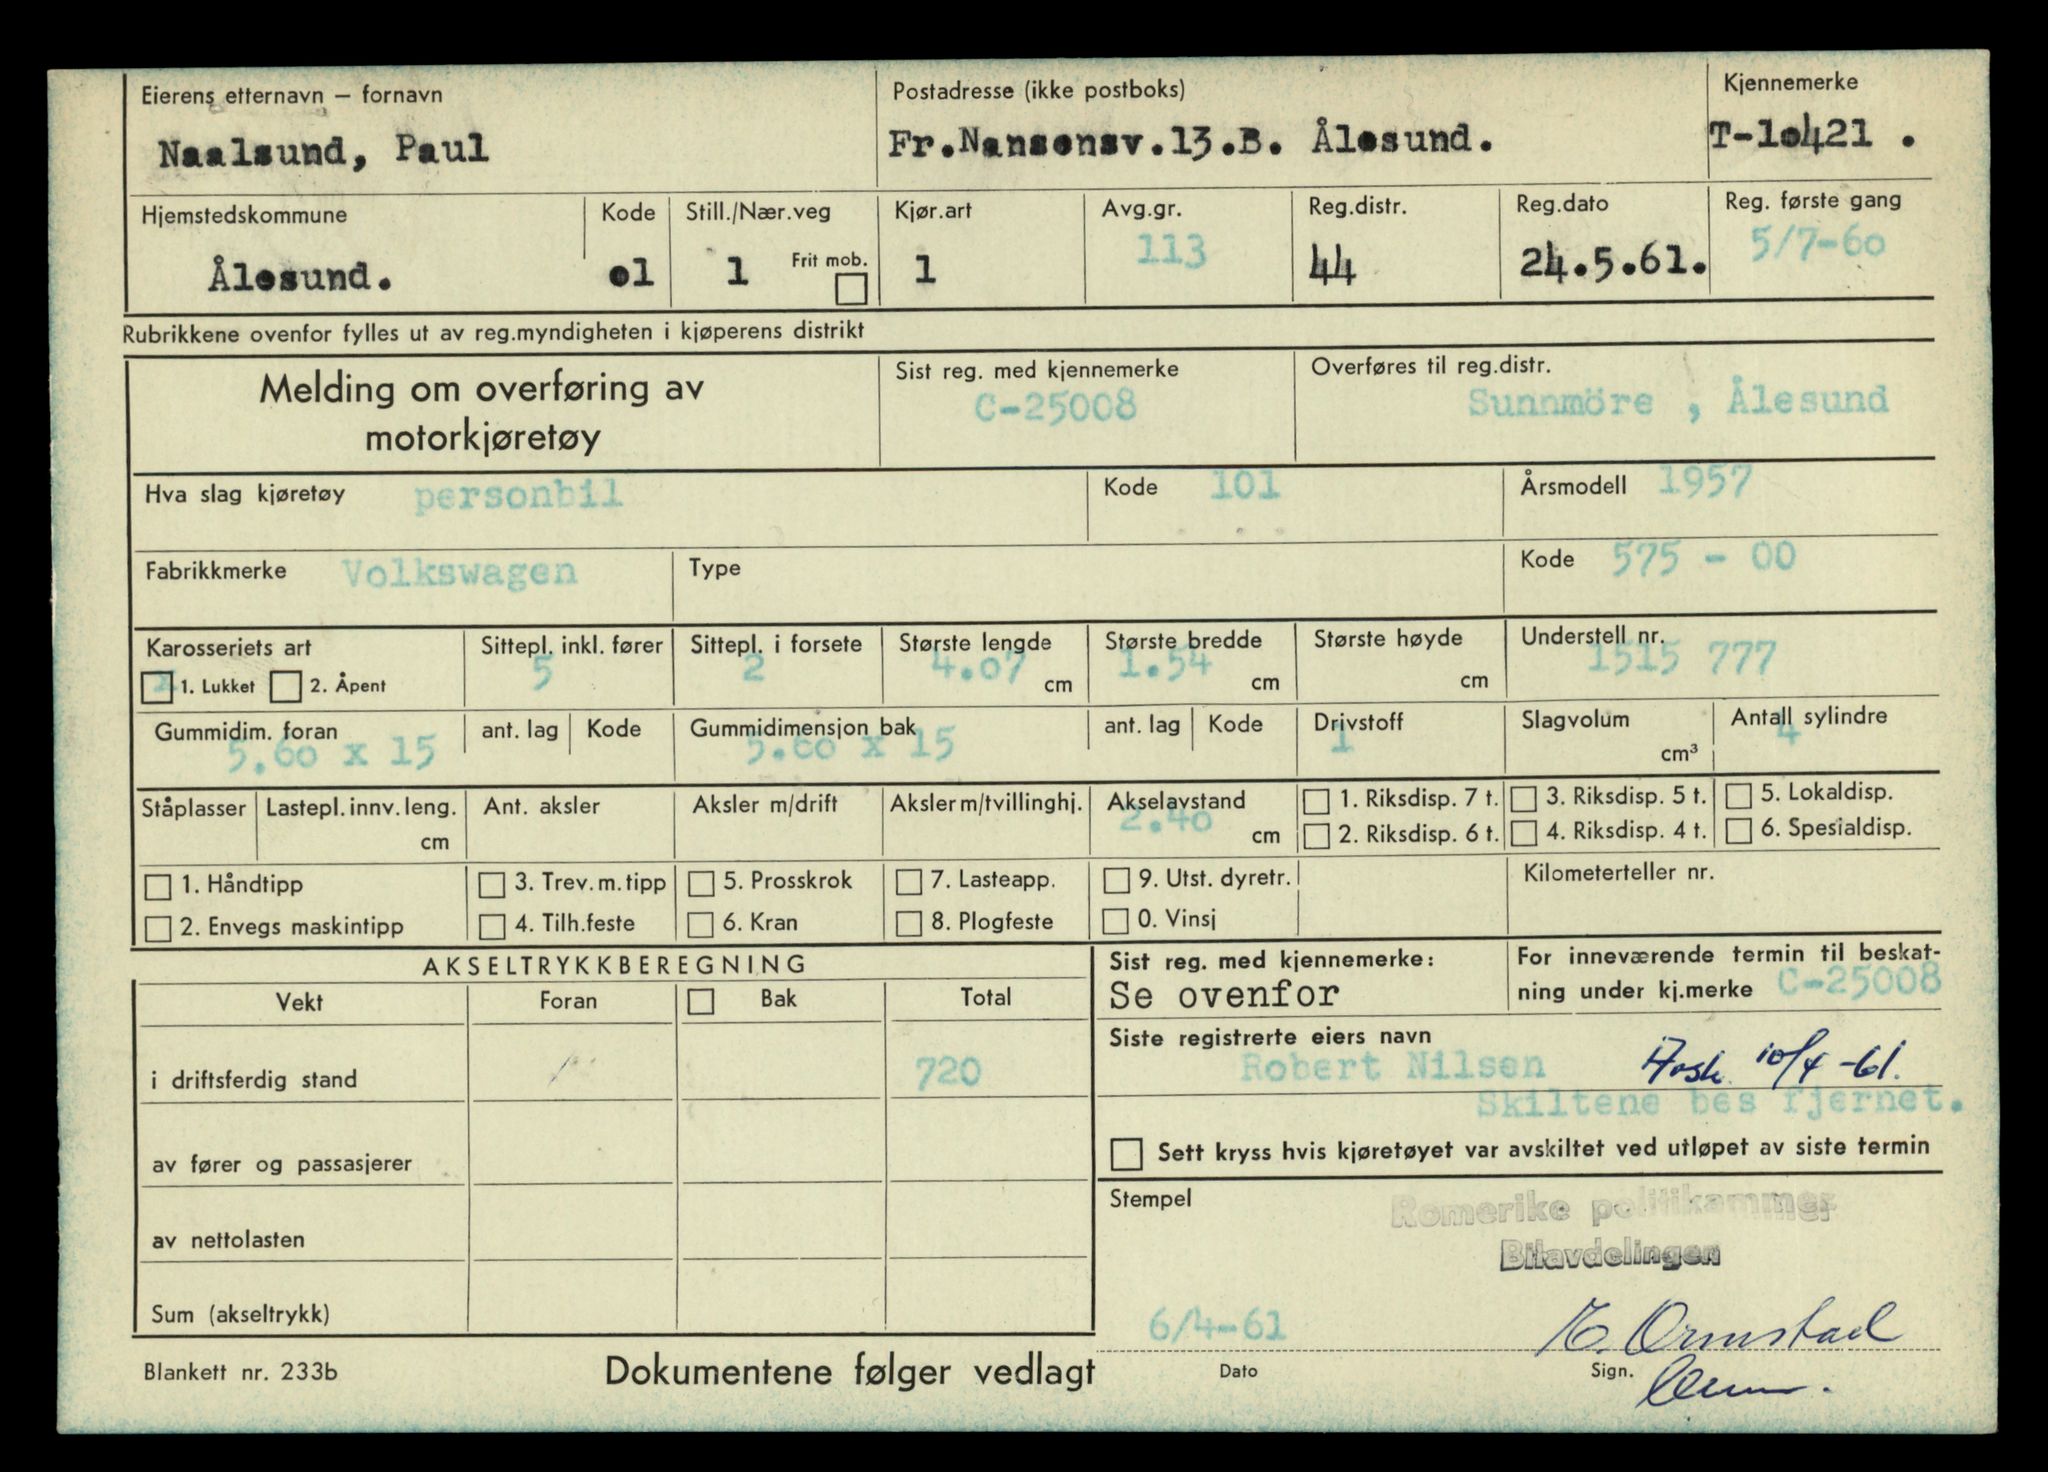 Eierens etternavn – fornavn
Naalsund, Paul
Postadresse (ikke postboks)
Fr.Nansensv.13.B. Ålesund.
Kjennemerke
T-10421 .
Hjemstedskommune
Ålesund.
Kode
01
Still./Nær.veg
1
Frit mob.
Kjør.art
1
Avg.gr.
113
Reg.distr.
44
Reg.dato
24.5.61.
Reg. første gang
5/7-60
Rubrikkene ovenfor fylles ut av reg.myndigheten i kjøperens distrikt
Melding om overføring av
motorkjøretøy
Sist reg. med kjennemerke
C-25008
Overføres til reg.distr.
Sunnmöre , Ålesund
Hva slag kjøretøy personbil
Kode 101
Årsmodell 1957
Fabrikkmerke Volkswagen
Type
Kode 575 - 00
Karosseriets art
1. Lukket 2. Åpent
Sittepl. inkl. fører
5
Sittepl. i forsete
2
Største lengde
4.07 cm
Største bredde
1.54 cm
Største høyde
cm
Understell nr.
1515 777
Gummidim. foran
5.60 x 15
ant. lag
Kode
Gummidimensjon bak
5.60 x 15
ant. lag
Kode
Drivstoff
1
Slagvolum
cm³
Antall sylindre
4
Ståplasser
Lastepl. innv. leng.
cm
Ant. aksler
Aksler m/drift
Aksler m/tvillinghj.
Akselavstand
2.40 cm
1. Riksdisp. 7 t.
2. Riksdisp. 6 t.
3. Riksdisp. 5 t.
4. Riksdisp. 4 t.
5. Lokaldisp.
6. Spesialdisp.
1. Håndtipp
2. Envegs maskintipp
3. Trev. m. tipp
4. Tilh.feste
5. Prosskrok
6. Kran
7. Lasteapp.
8. Plogfeste
9. Utst. dyretr.
0. Vinsj
Kilometerteller nr.
AKSELTRYKKBEREGNING
Vekt Foran Bak Total
i driftsferdig stand 720
av fører og passasjerer
av nettolasten
Sum (akseltrykk)
Sist reg. med kjennemerke:
Se ovenfor
For inneværende termin til beskat-
ning under kj.merke C-25008
Siste registrerte eiers navn
Robert Nilsen
10/4 -61.
Skiltene bes fjernet.
Sett kryss hvis kjøretøyet var avskiltet ved utløpet av siste termin
Stempel
Romerike politikammer
Bilavdelingen
6/4-61
E. Ormstad
Dato
Sign.
Blankett nr. 233b
Dokumentene følger vedlagt